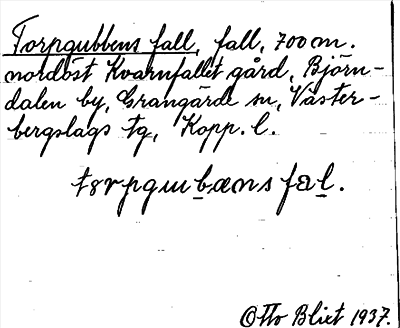 Torpgubbens fall, fall, 700 m.
nordöst Kvarnfallet gård, Björn-
dalen by, Grangärde sn, Väster-
bergslags tg, Kopp. l.
tɵrpgubæns fal.
Otto Blixt 1937.